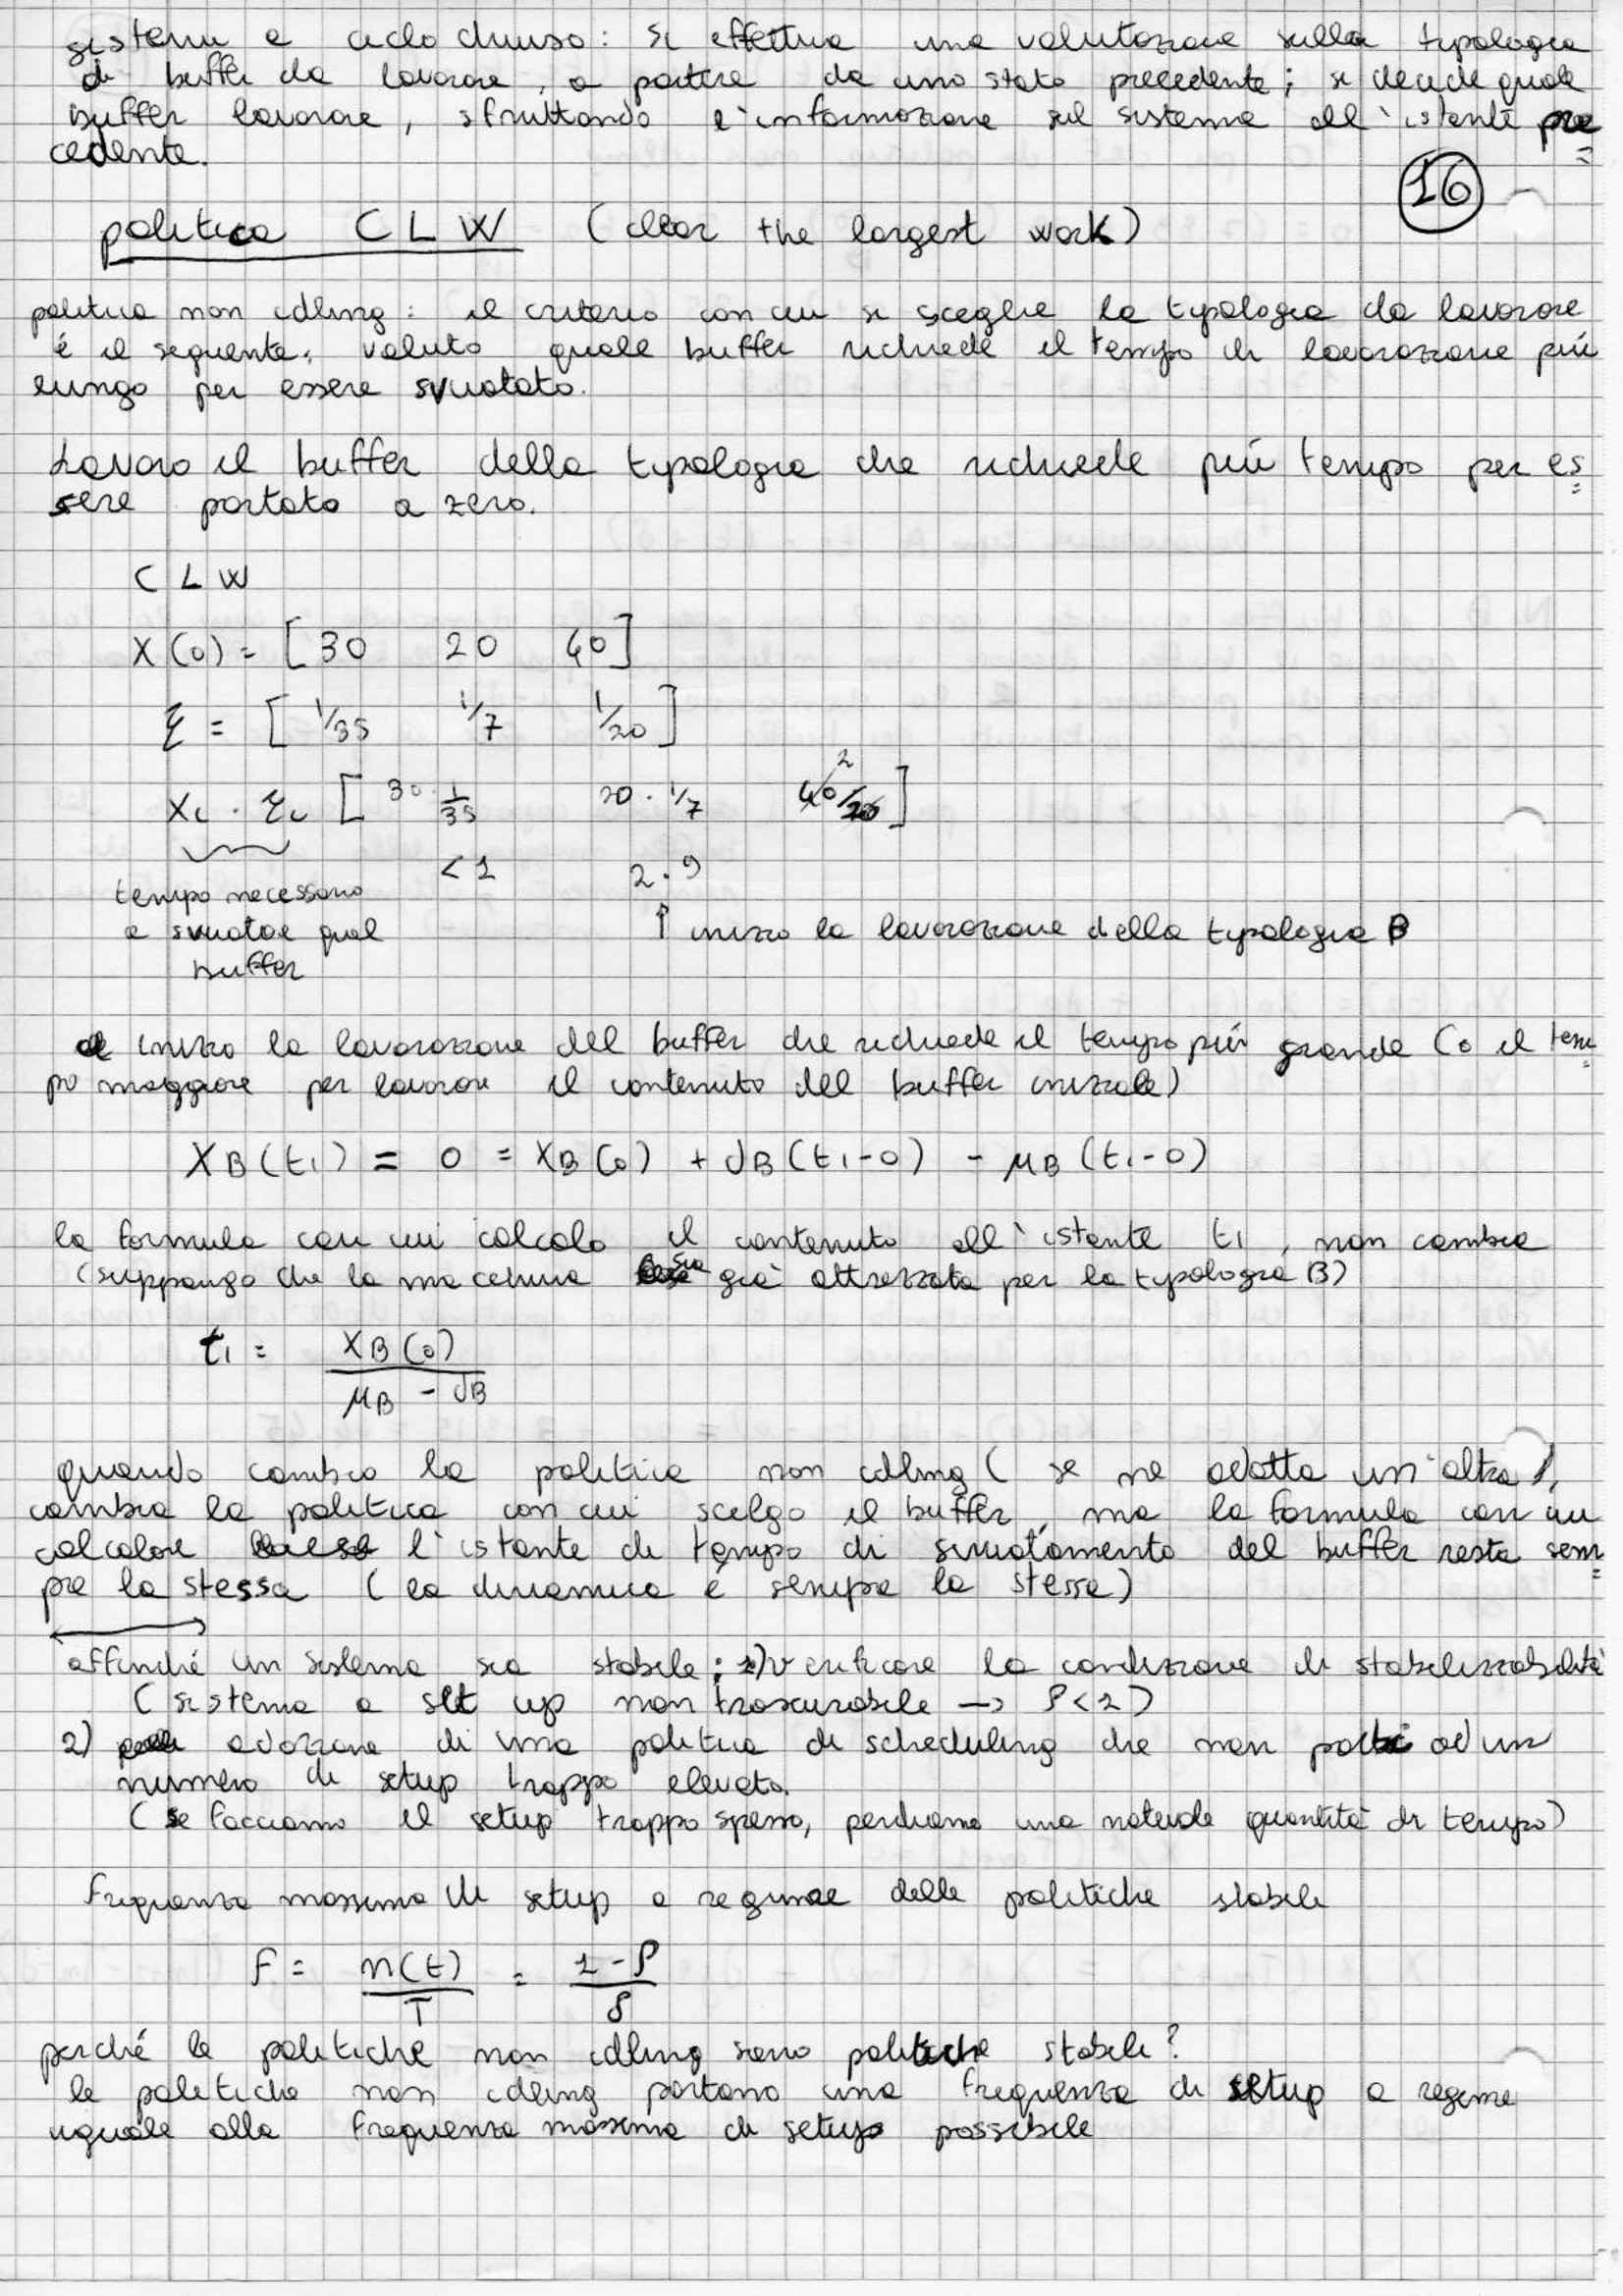 sistemi a ciclo chiuso: si effettua una valutazione sulla tipologia
di buffer da lavorare, a partire da uno stato precedente; si decide quale
buffer lavorare, sfruttando l'informazione sul sistema all'istante pre
cedente.
16
politica CLW (clear the largest work)
politica non idling: il criterio con cui si sceglie la tipologia da lavorare
é il seguente: valuto quale buffer richiede il tempo di lavorazione piú
lungo per essere svuotato.
Lavoro il buffer della tipologia che richiede piú tempo per es
sere portato a zero.
CLW
X(0) = [30 20 40]
ξ = [1/35 1/7 1/20]
Xi · ξi [30 · 1/35 20 · 1/7 40/20 2]
<1 2.9
tempo necessario
a svuotare quel
buffer
↑ inizio la lavorazione della tipologia B
inizio la lavorazione del buffer che richiede il tempo piú grande (o il tem
po maggiore per lavorare il contenuto del buffer iniziale)
XB(t1) = 0 = XB(0) + dB(t1-0) - μB(t1-0)
la formula con cui calcolo il contenuto all'istante t1, non cambia
(suppongo che la macchina sia giá attrezzata per la tipologia B)
t1 = XB(0) / μB - dB
quando cambio la politica non idling (se ne adotta un'altra),
cambia la politica con cui scelgo il buffer, ma la formula con cui
calcolare l'istante di tempo di svuotamento del buffer resta sem
pre la stessa (la dinamica é sempre la stessa)
affinché un sistema sia stabile: 1) verificare la condizione di stabilizzabilitá
(sistema a set up non trascurabile → ρ<1)
2) adozione di una politica di scheduling che non porti ad un
numero di setup troppo elevato.
(se facciamo il setup troppo spesso, perdiamo una notevole quantitá di tempo)
frequenza massima di setup a regime delle politiche stabili
f = n(t)/T = 1-ρ/δ
perché le politiche non idling sono politiche stabili?
le politiche non idling portano una frequenza di setup a regime
uguale alla frequenza massima di setup possibile